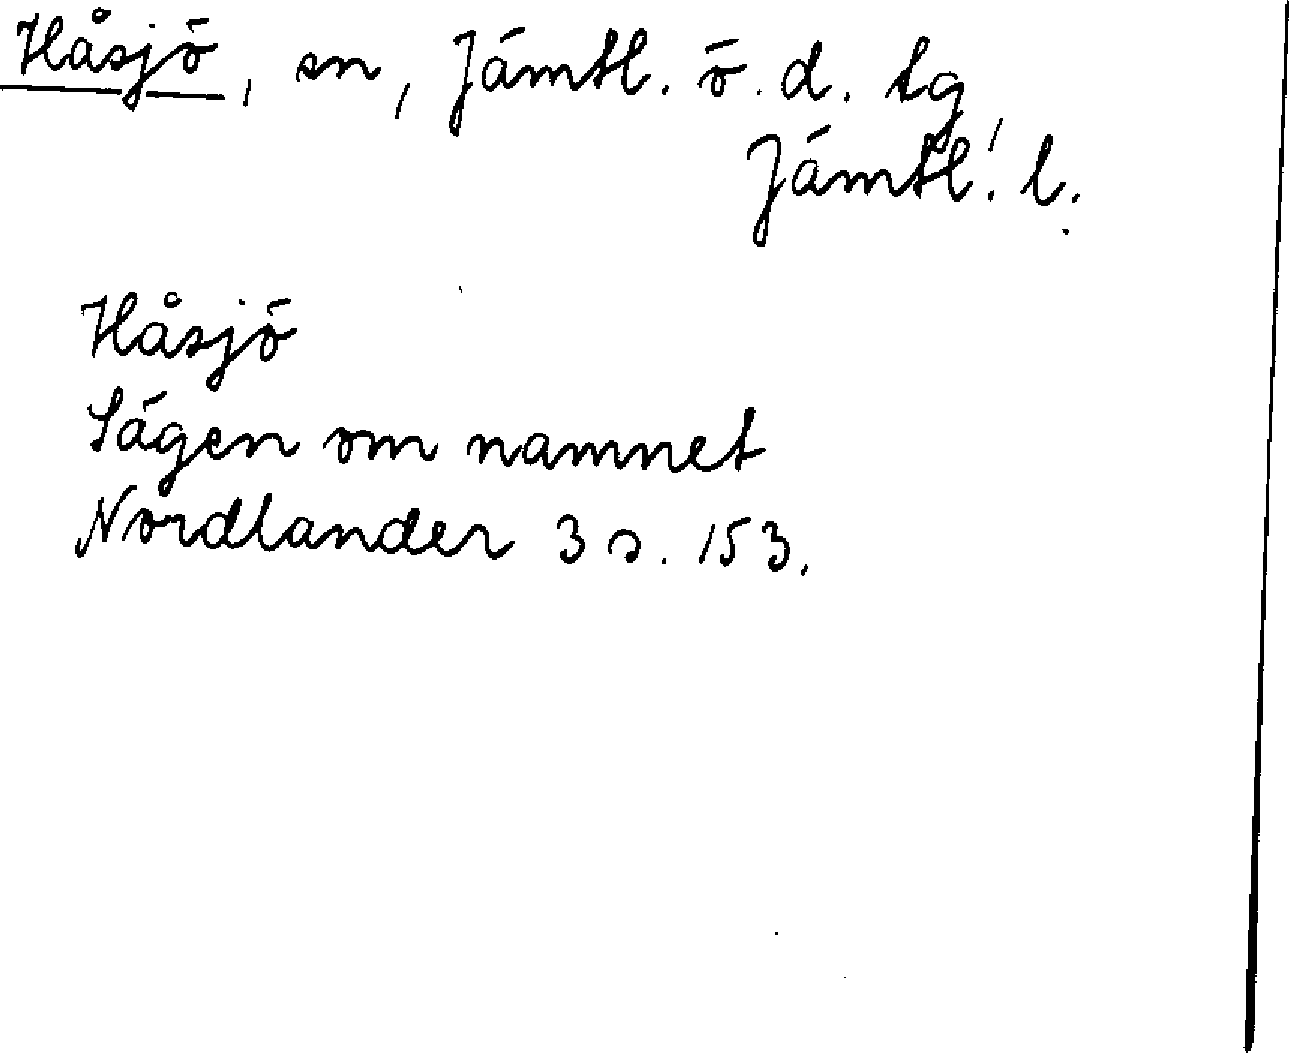 Håsjö, sn, Jämtl. ö. d. tg,
Jämtl. l.
Håsjö
Sägen om namnet
Nordlander 3 s. 153.